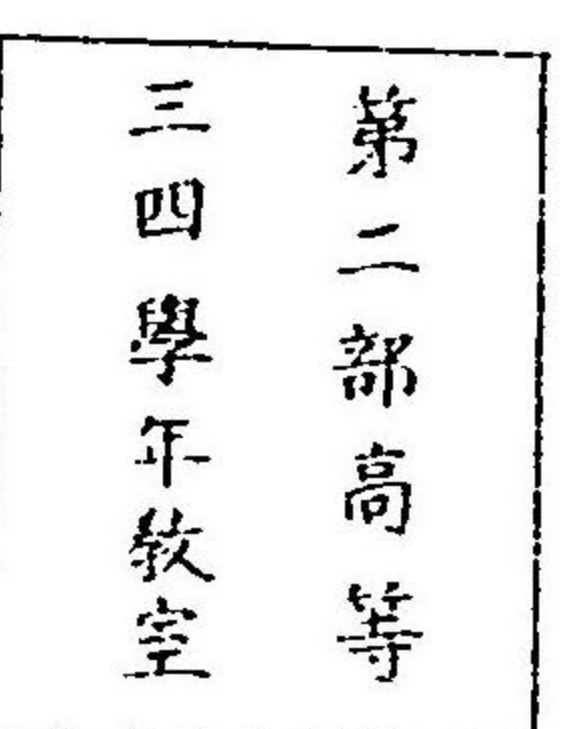 第二部高等
三四學年教室